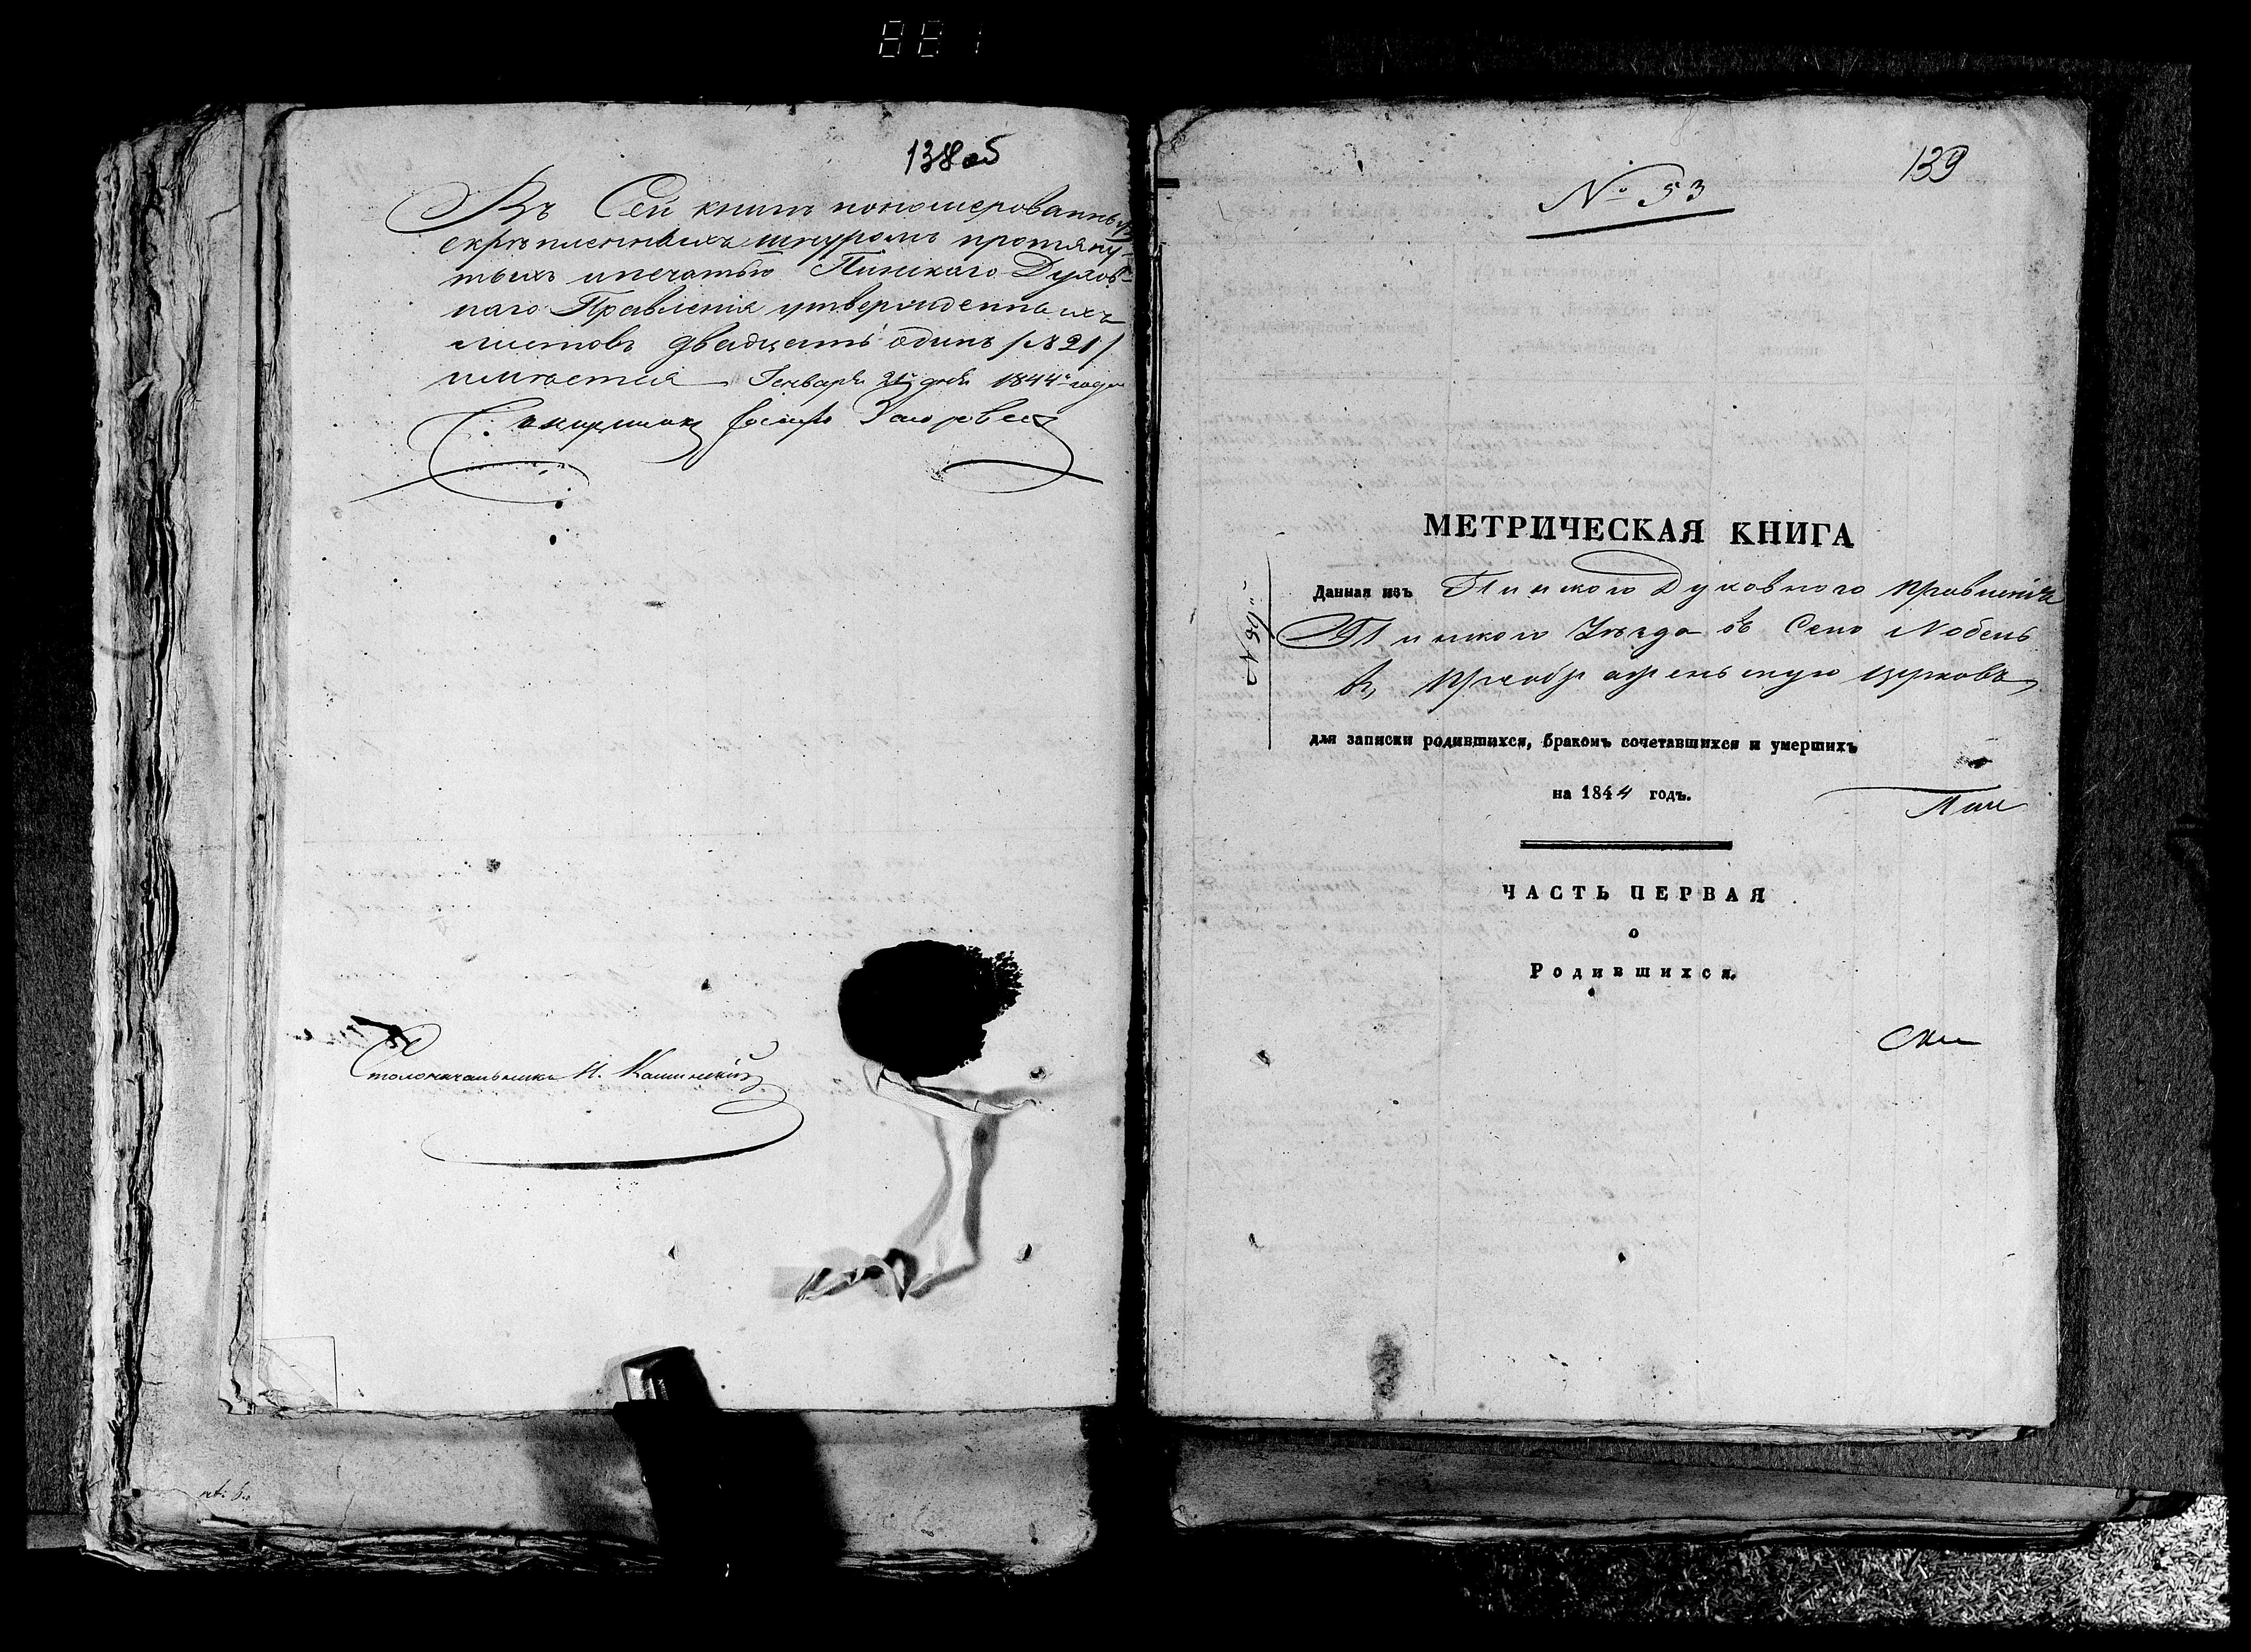 881
138 об
Въ Сей книгѣ пономерованныхъ
скрѣпленныхъ шнуромъ протяну-
тыхъ и печатью Пинскаго Духов-
наго Правленія утвержденныхъ
листовъ двадцать одинъ /№ 21/
имѣется Генваря 21 дня 1844 года
Столоначальникъ И. Кашинскій
139
№ 53
МЕТРИЧЕСКАЯ КНИГА
Данная изъ Пинского Духовного Правленія
Пинского Уѣзда въ Село Нобель
въ Преображенскую церковь
для записки родившихся, бракомъ сочетавшихся и умершихъ
на 1844 годъ.
ЧАСТЬ ПЕРВАЯ
о
Родившихся.